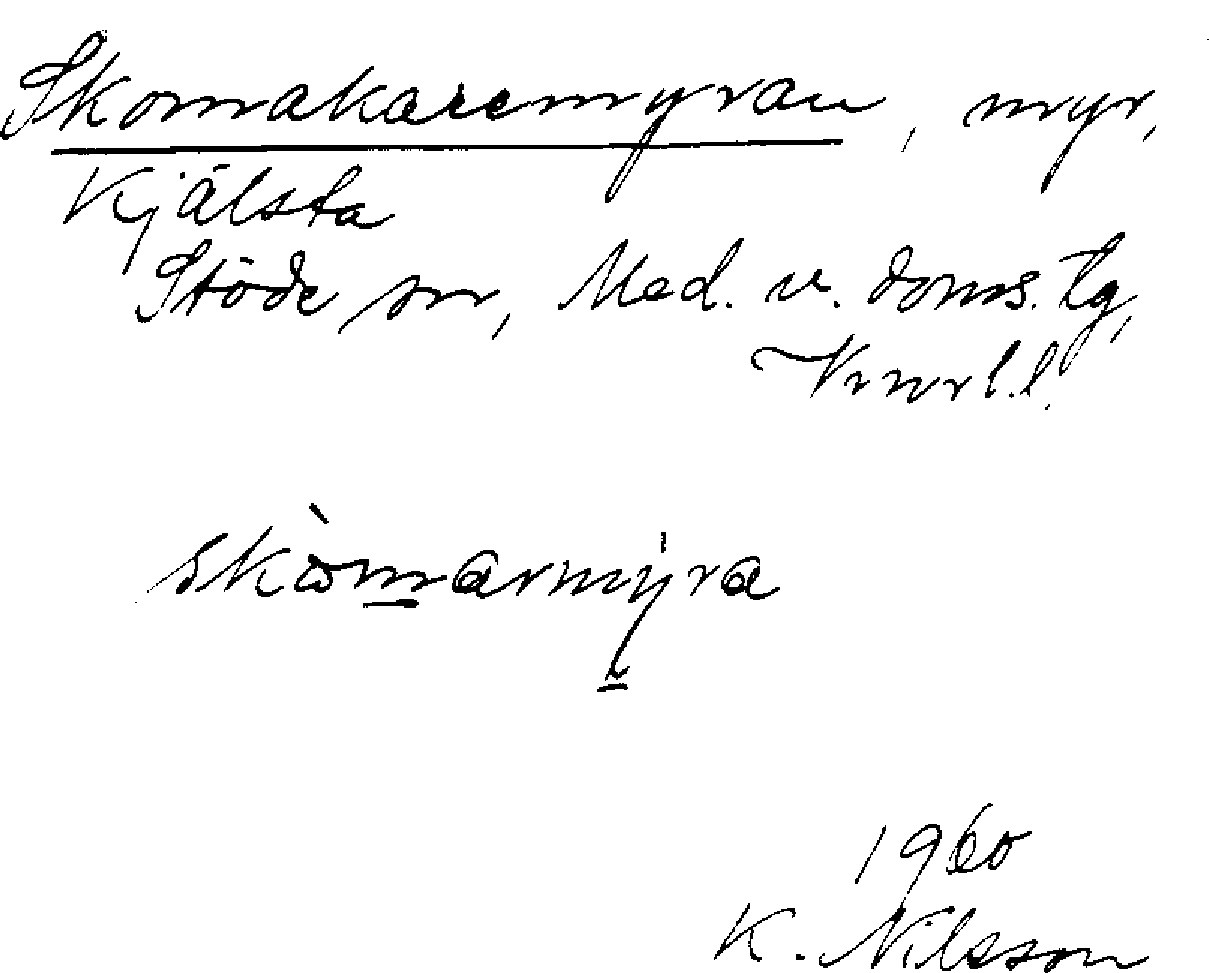 Skomakaremyran, myr,
Kjälsta
Stöde sn, Med. v. doms. tg,
Vrnrl.l.
skòmarmýra
1960
K. Nilsson